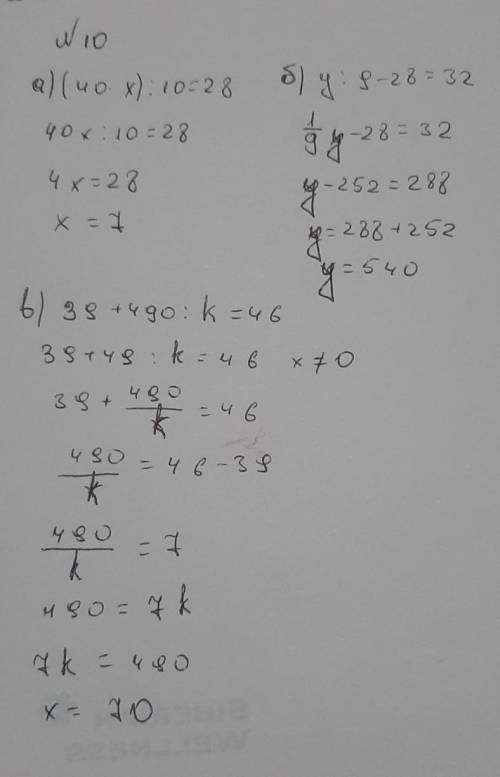 №10
а) (40·x):10=28
40x:10=28
4x=28
x=7
б) y:9-28=32
1/9 y-28=32
y-252=288
y=288+252
y=540
в) 39+490:k=46
39+49:k=46 x70
39+490/k=46
490/k=46-39
490/k=7
490=7k
7k=490
x=70